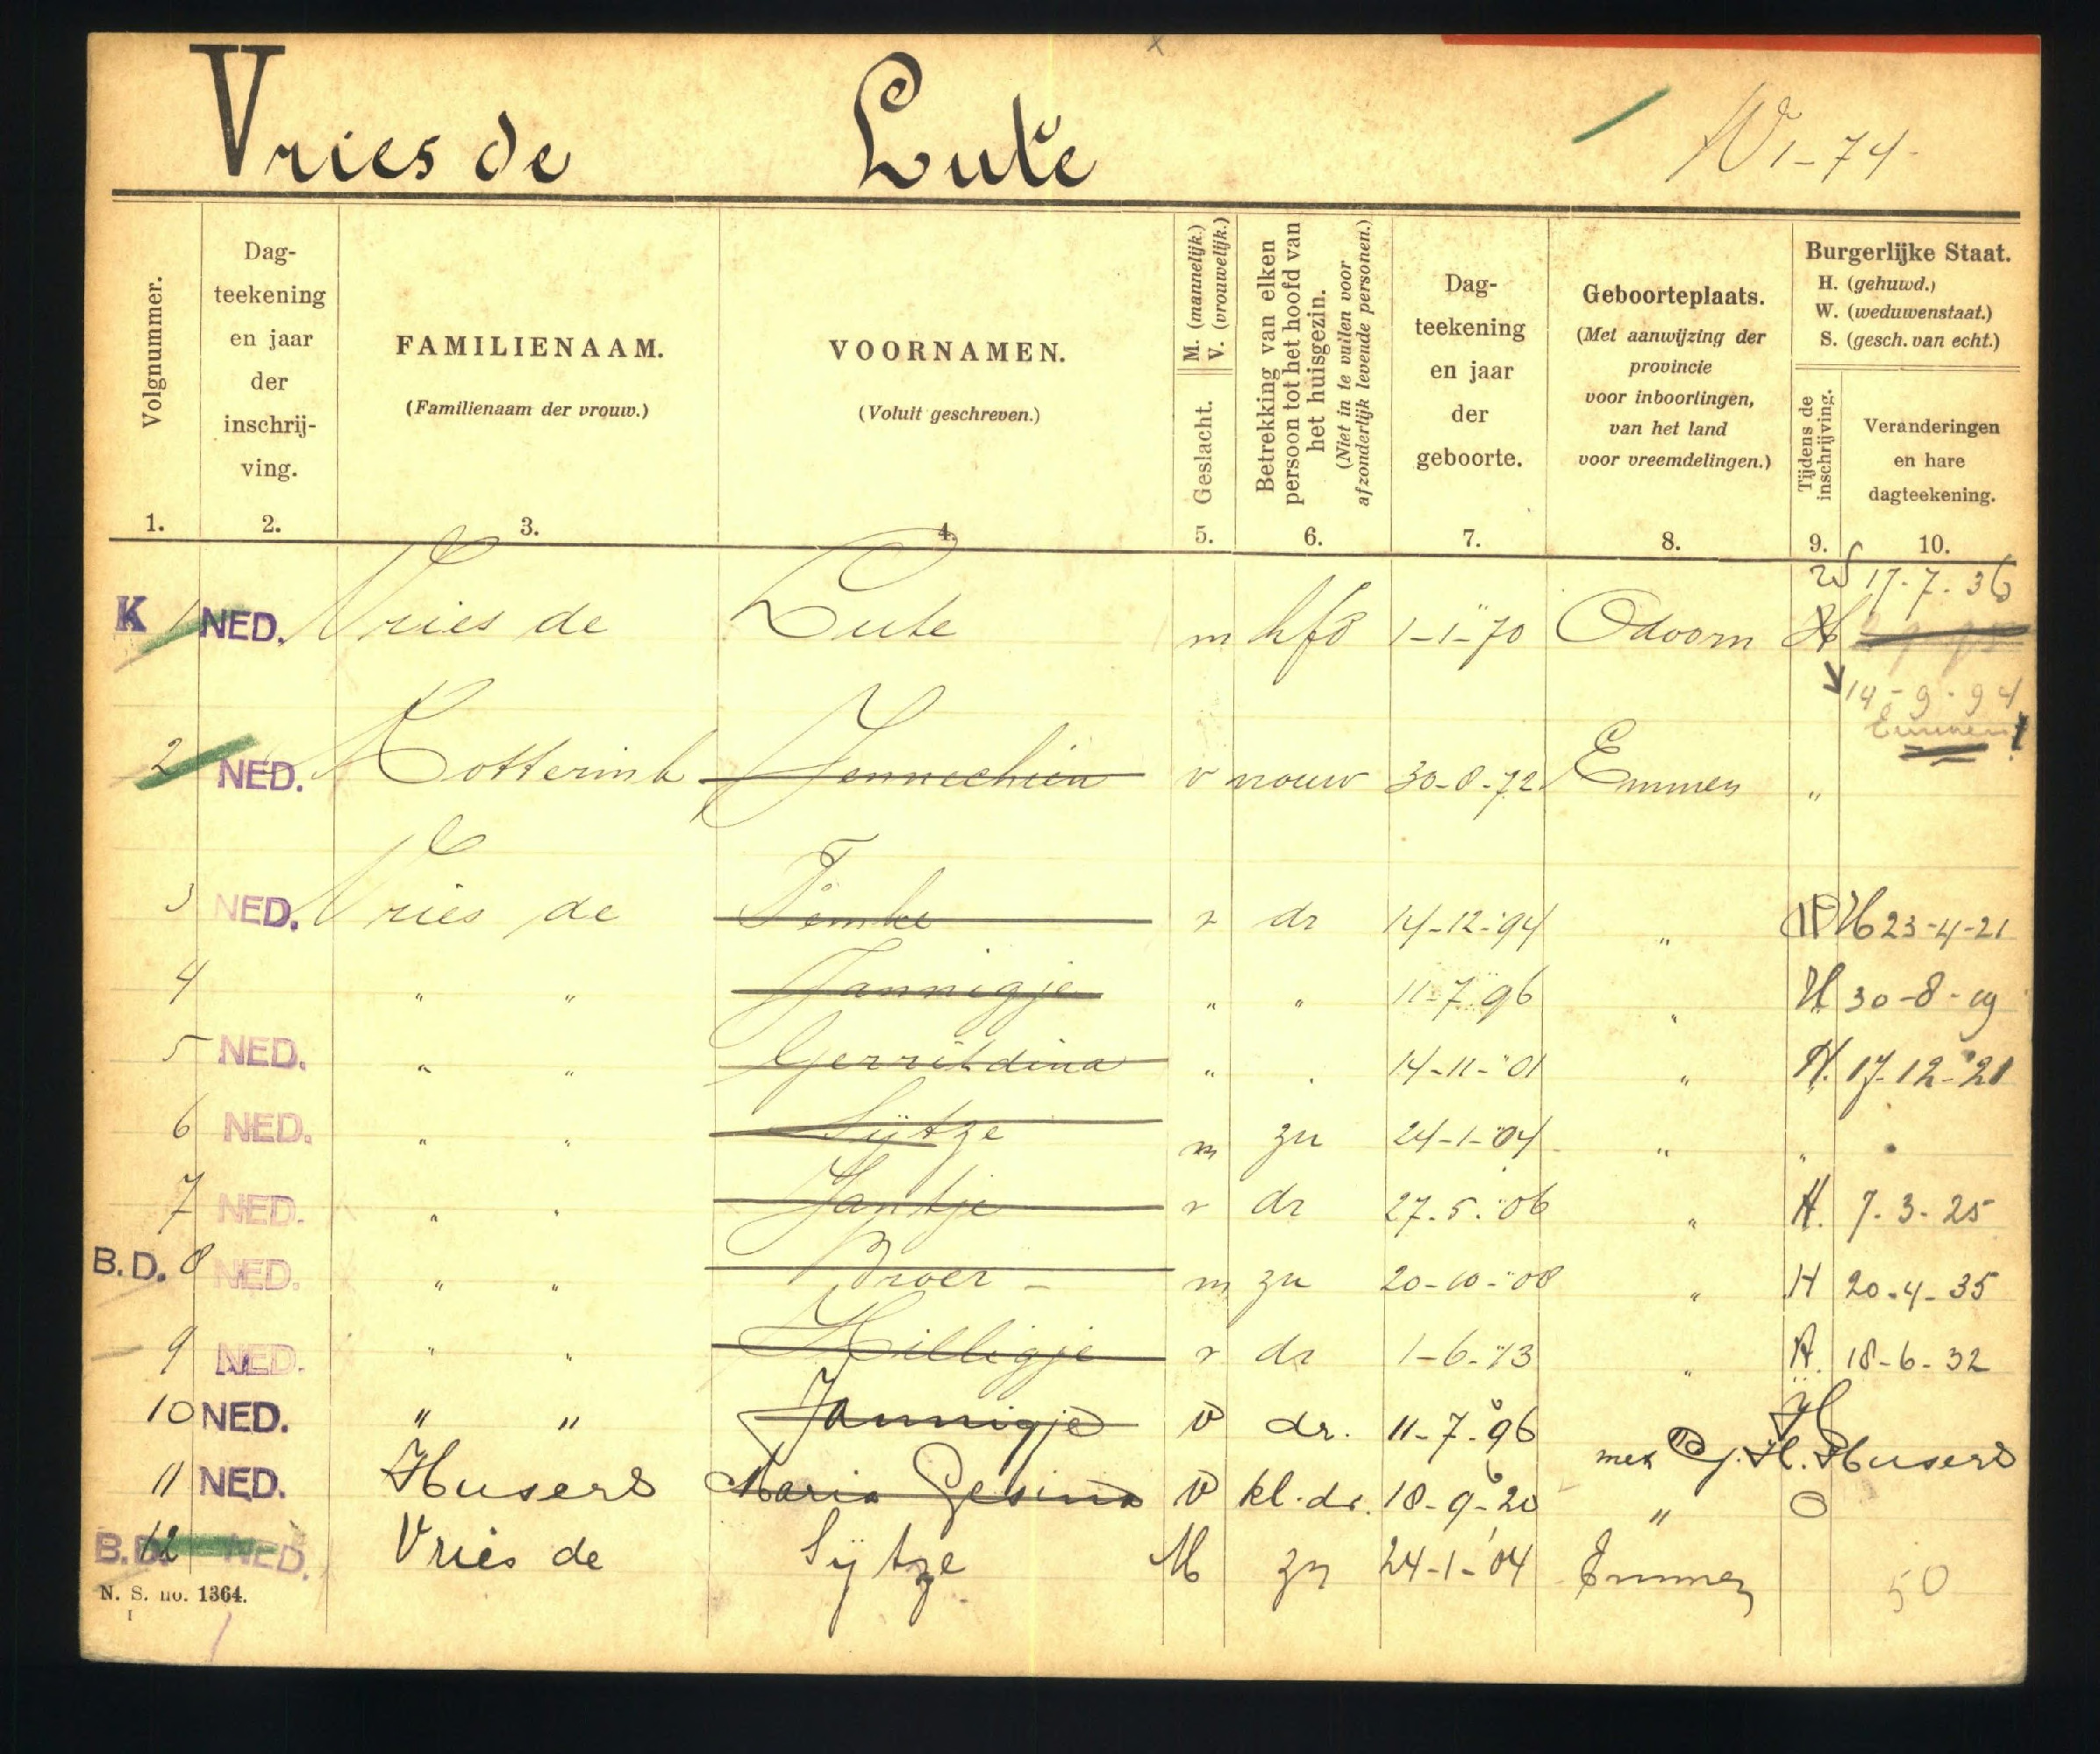 Vries de Lute W1-74-
Volgnummer.
Dag-
teekening
en jaar
der
inschrij-
ving.
FAMILIENAAM.
(Familienaam der vrouw.)
VOORNAMEN.
(Voluit geschreven.)
Geslacht.
M. (mannelijk.)
V. (vrouwelijk.)
Betrekking van elken
persoon tot het hoofd van
het huisgezin.
(Niet in te vullen voor
afzonderlijk levende personen.)
Dag-
teekening
en jaar
der
geboorte.
Geboorteplaats.
(Met aanwijzing der
provincie
voor inboorlingen,
van het land
voor vreemdelingen.)
Burgerlijke Staat.
H. (gehuwd.)
W. (weduwenstaat.)
S. (gesch. van echt.)
Tijdens de
inschrijving.
Veranderingen
en hare
dagteekening.
1. 2. 3. 4. 5. 6. 7. 8. 9. 10.
W 17-7-36
K 1 NED. Vries de Lute m hfd 1-1-70 Odoorn H
14-9-94
Emmen
2 NED. Kotterink Jennechien v vrouw 30-8-72 Emmen "
3 NED. Vries de Femke v dr 14-12-94 " H 23-4-21
4 " " Jannigje " " 11-7-96 " H 30-8-19
5 NED. " " Gerritdina " " 14-11-01 " H. 17-12-21
6 NED. " " Sijtze m zn 24-1-04 " "
7 NED. " " Jantje v dr 27.5.06 " H. 7.3.25
B.D. 8 NED. " " Broer m zn 20-10-08 " H 20-4-35
9 NED. " " Hilligje v dr 1-6-13 " H. 18-6-32
10 NED. " " Jannigje v dr. 11-7-96 H
met J. H. Husers
11 NED. Husers Maria Gesina v kl.dr. 18-9-20 " O
B.D. 12 NED. Vries de Sijtze M zn 24-1-04 Emmen 50
N. S. no. 1364.
I